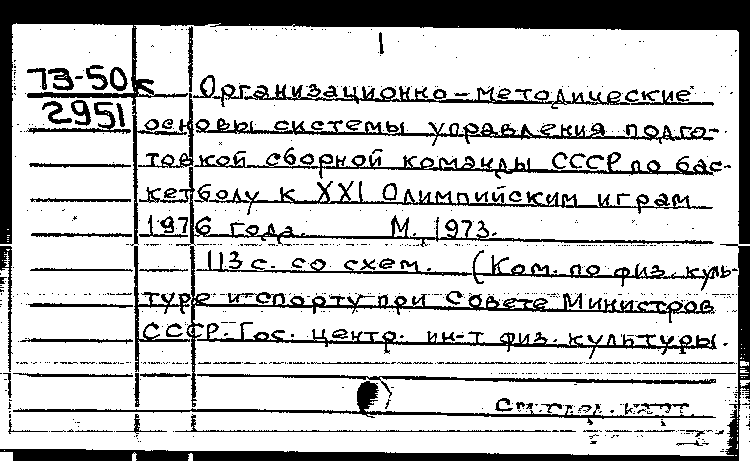 1
73-50к
2951
Организационно-методические
основы системы управления подго-
товкой сборной команды СССР по бас-
кетболу к XXI Олимпийским играм
1976 года. М., 1973.
113 с. со схем. (Ком. по физ. куль-
туре и спорту при Совете Министров
СССР. Гос. центр. ин-т физ. культуры.
см. след. карт.